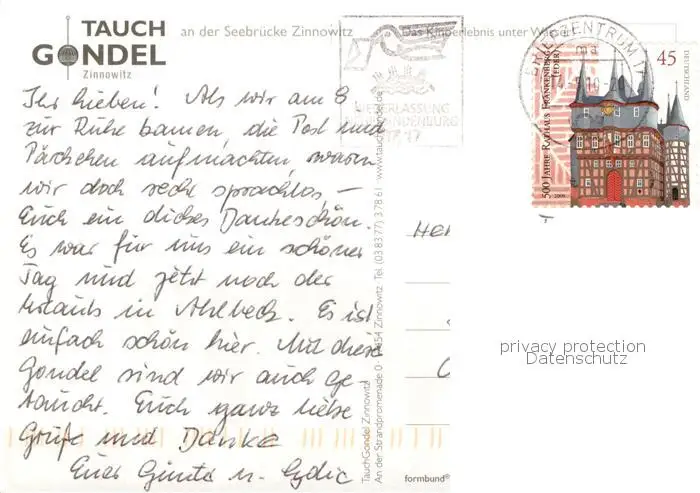 TAUCH
GONDEL
Zinnowitz
an der Seebrücke Zinnowitz
Das Kinoerlebnis unter Wasser!
Ihr Lieben! Als wir am 8.
zur Ruhe kamen, die Post und
Päckchen aufmachten, waren
wir doch recht sprachlos –
Euch ein dickes Dankeschön.
Es war für uns ein schöner
Tag und jetzt noch der
Urlaub in Ahlbeck. Es ist
einfach schön hier. Mit dieser
Gondel sind wir auch ge-
taucht. Euch ganz liebe
Grüße und Danke
Euer
TauchGondel Zinnowitz
An der Strandpromenade
Zinnowitz Tel. (03 83 77) 3 78 61
www.tauchgondel.de
formbund
NIEDERLASSUNG
BRIEFZENTRUM 17
500 JAHRE RATHAUS FRANKENBERG
(EDER)
2009
45
DEUTSCHLAND
privacy protection
Datenschutz